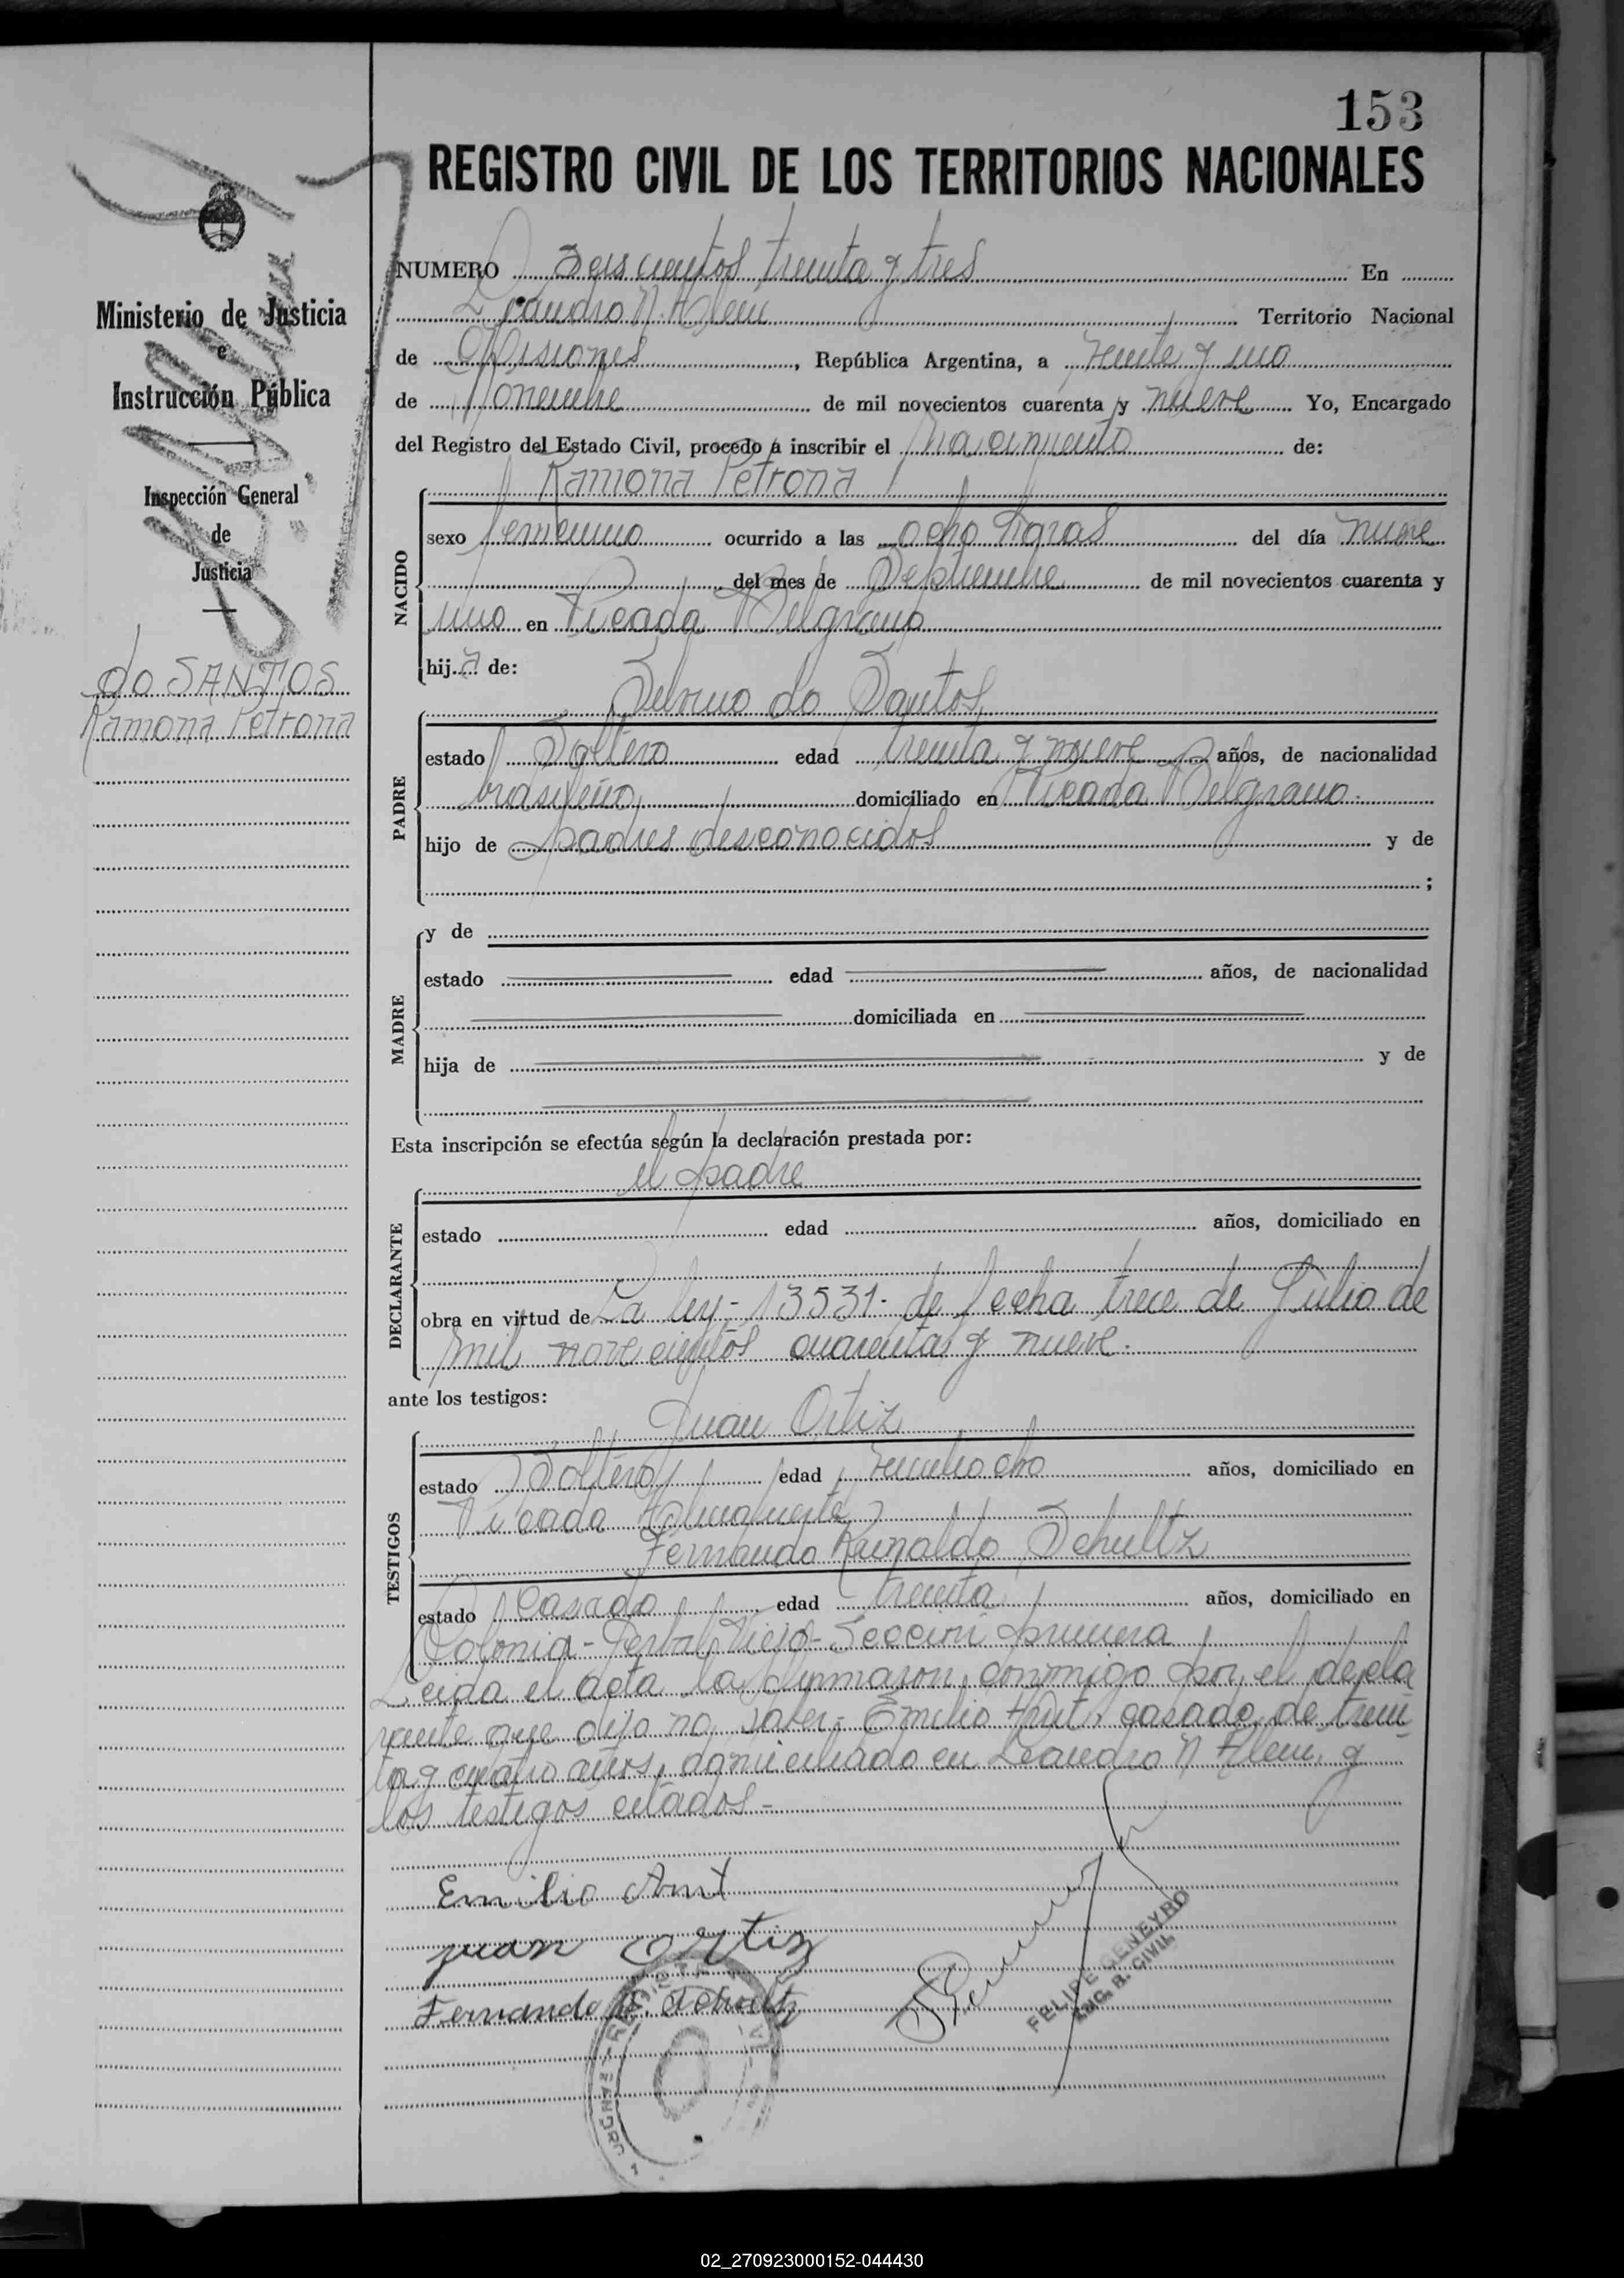 153
REGISTRO CIVIL DE LOS TERRITORIOS NACIONALES
NUMERO Seis cientos treinta y tres En
Leandro N. Alem Territorio Nacional
de Misiones, República Argentina, a veinte y uno
de Noviembre de mil novecientos cuarenta y nueve Yo, Encargado
del Registro del Estado Civil, procedo a inscribir el nacimiento de:
Ramona Petrona
NACIDO
sexo femenino ocurrido a las ocho horas del día nueve
del mes de Septiembre de mil novecientos cuarenta y
uno en Picada Belgrano
hija de:
do Santos
PADRE
estado Soltero edad treinta y nueve años, de nacionalidad
brasileña domiciliado en Picada Belgrano
hijo de padres desconocidos y de
;
MADRE
y de
estado edad años, de nacionalidad
domiciliada en
hija de y de
Esta inscripción se efectúa según la declaración prestada por:
el padre
DECLARANTE
estado edad años, domiciliado en
obra en virtud de La ley - 13531 - de fecha trece de Julio de
mil novecientos cuarenta y nueve.
ante los testigos:
Juan Ortiz
TESTIGOS
estado Soltero edad años, domiciliado en
Picada
Fernando Reinaldo Schultz
estado Casado edad treinta años, domiciliado en
Colonia - Viejo - Sección primera
Leida el acta la firmaron conmigo por el decla
rante que dijo no saber - Emilio casado, de trein
ta y cuatro años, domiciliado en Leandro N Alem, y
los testigos citados -
Emilio Arnt
juan Ortiz
Fernando R. Schultz
FELIPE GENEYRO
ENC. R. CIVIL
Ministerio de Justicia
e
Instrucción Pública
Inspección General
de
Justicia
do SANTOS
Ramona Petrona
02_270923000152-044430